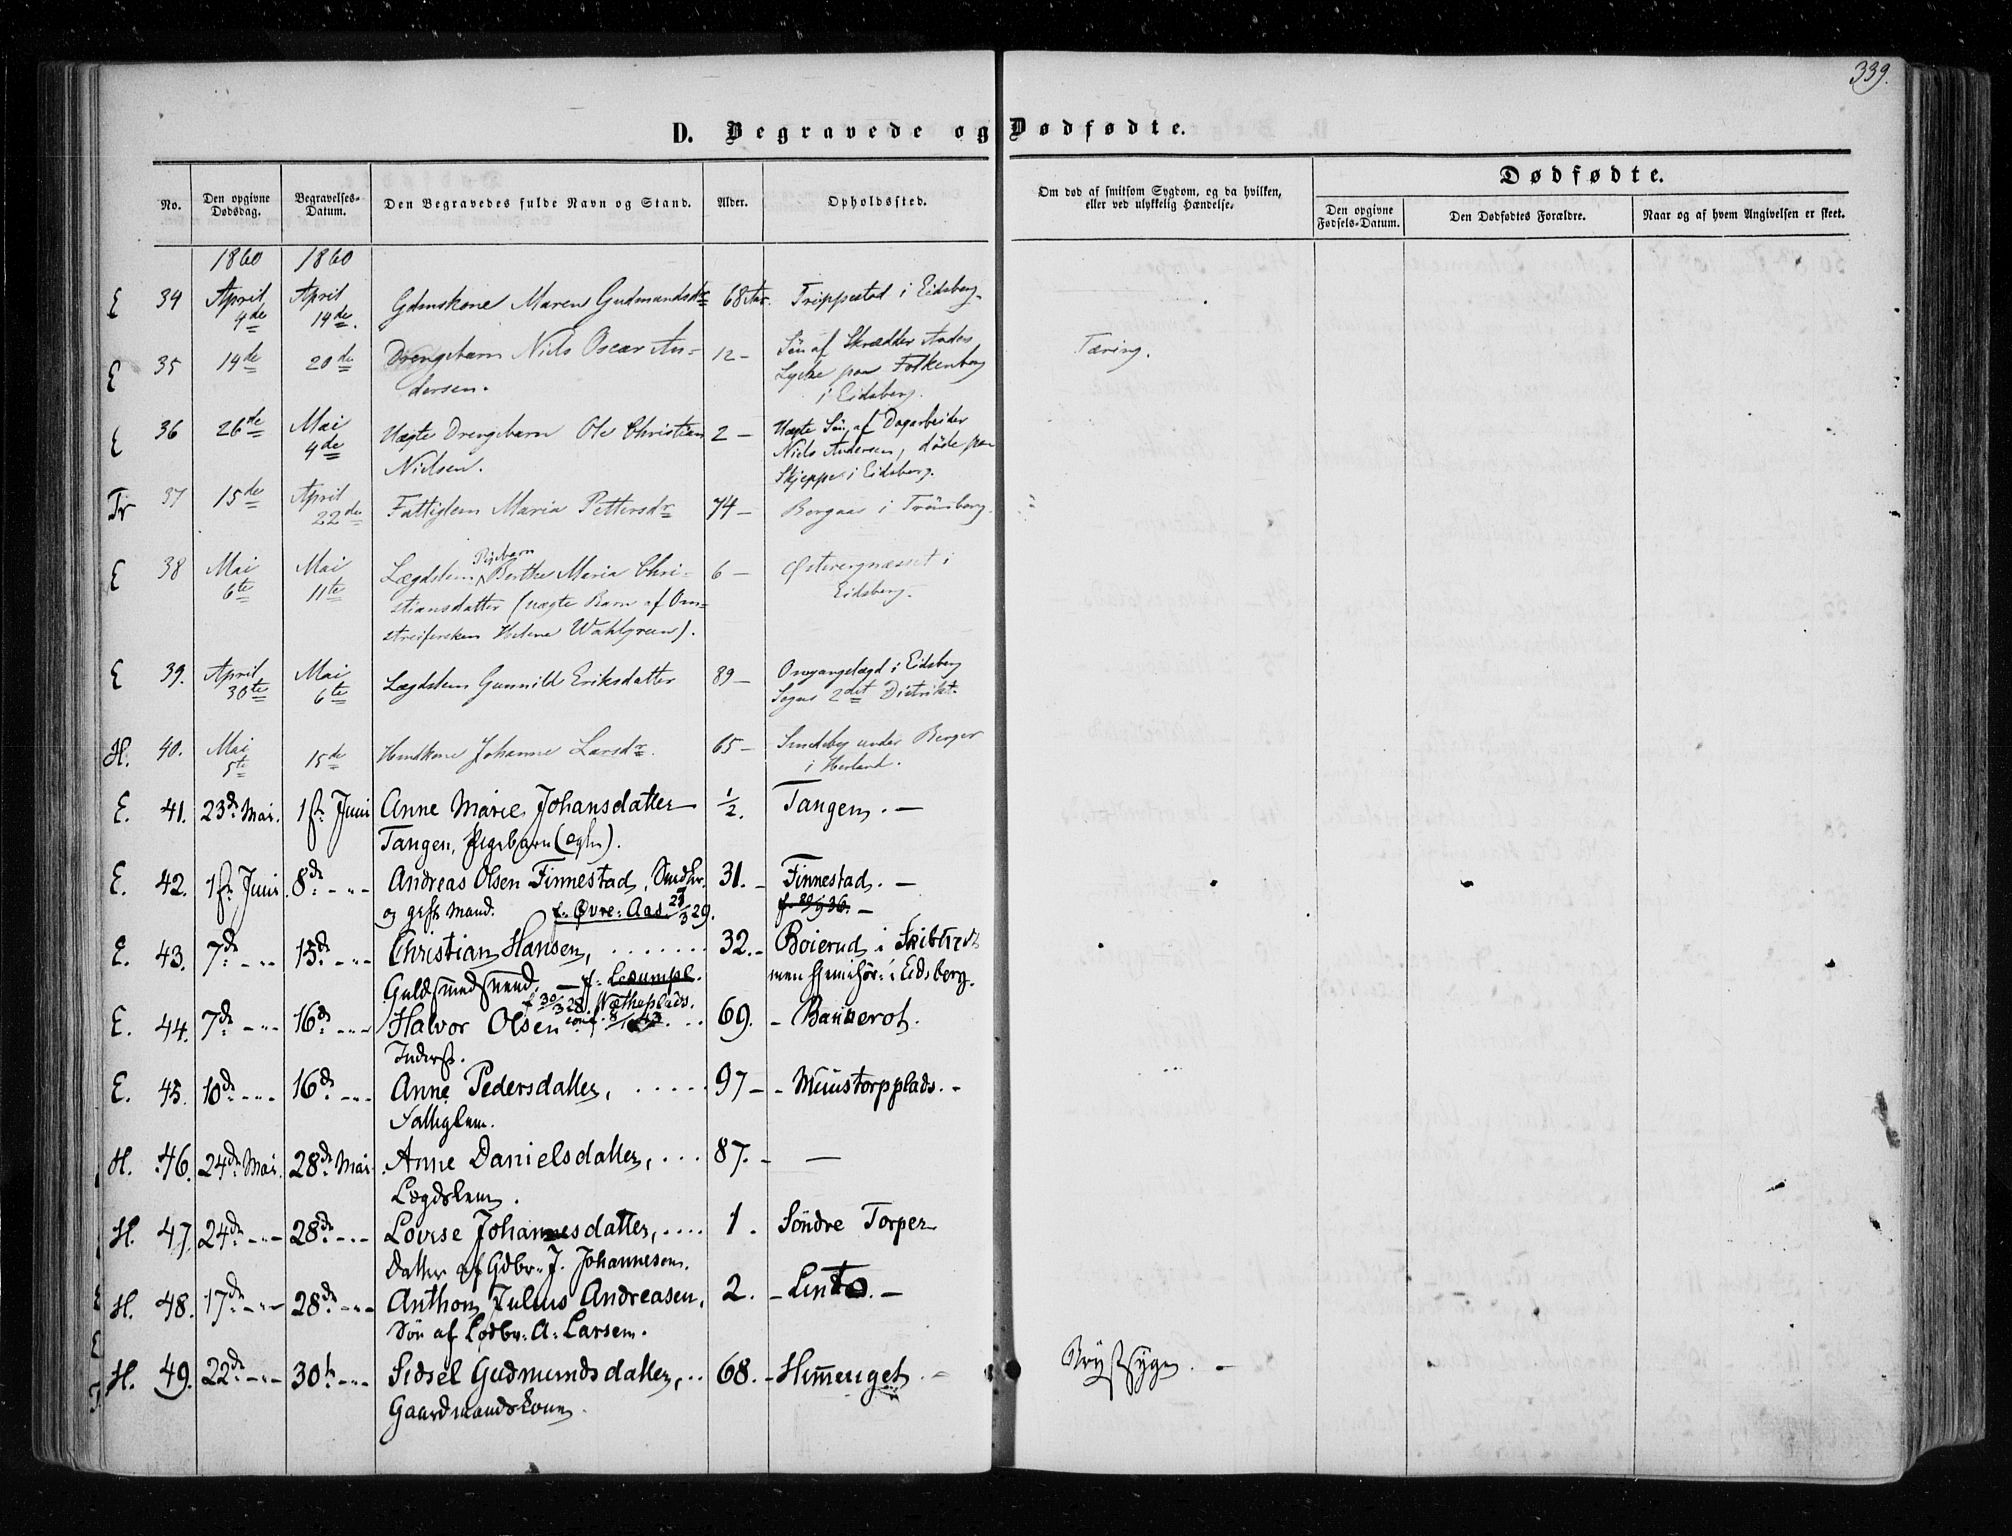 339.
D. Begravede og Dødfødte.
No.
Den opgivne Dødsdag.
Begravelses-Datum.
Den Begravedes fulde Navn og Stand.
Alder.
Opholdssted.
Om død af smitsom Sygdom, og da hvilken,
eller ved ulykkelig Hændelse.
Dødfødte.
Den opgivne Fødsels-Datum.
Den Dødfødtes Forældre.
Naar og af hvem Angivelsen er skeet.
1860 1860
E 34 April 4de April 14de. Gdmskone Maren Gudmandsdr 68 Aar. Trippestad i Eidsberg.
E 35 14de 20de Drengebarn Niels Oscar An- 12 – Søn af Skrædder Anders Tæring.
dersen. Lycke paa Folkenborg
i Eidsberg.
E 36 26de Mai 4de Uægte Drengebarn Ole Christian 2 – Uægte Søn af Dagarbeider
Nielsen. Niels Andersen, døde paa
Skjeppe i Eidsberg.
Tr 37 15de April 22de Fattiglem Maria Pettersdr 74 – Borgaas i Trømborg.
E 38 Mai 6te Mai 11te Lægdslem Pigebarn Berthe Maria Chri- 6 – Østerregnæsset i
stiansdatter (uægte Barn af Om- Eidsberg.
streifersken Helene Wahlgreen).
E 39. April 30te Mai 6te Lægdslem Gunnild Eriksdatter 89 – Omgangslægd i Eidsberg
Sogns 2det Distrikt.
H. 40. Mai 5te 15de Huuskone Johanne Larsdr. 65 – Smedsby under Berger
i Herland.
E. 41. 23de Mai. 1st Juni Anne Marie Johansdatter ½. Tangen. –
Tangen, Pigebarn (egte).
E. 42. 1st Juni 8de -"- Andreas Olsen Finnestad, Smedsv. 31. – Finnestad. –
og gift Mand. f. Øvre Aas 23/3 29. f. 29/9 36. –
E. 43. 7de -"- 15de -"- Christian Hansen, ....... 32. – Boierud i Skibtvedt
Guldsmedsvend. – f. Leeumpl. men hjemhør. i Eidsberg.
f 30/3 28. Næthuplads.
E. 44. 7de -"- 16de -"- Halvor Olsen conf. 8/10 43. .. 69. – Bankerot.
Inderst.
E. 45. 10de -"- 16de -"- Anne Pedersdatter, ..... 97 – Muustorpplads. –
Fattiglem.
H. 46. 24de Mai. 28de Mai. Anne Danielsdatter, ... 87. – —
Lægdslem.
H. 47. 24de -"- 28de -"- Lovise Johannesdatter, .... 1. Söndre Torper
Datter af Gdbr. J. Johannesen.
H. 48. 17de -"- 28de -"- Anthon Julius Andreasen, 2. – Lento. –
Søn af Lødbr. A. Larsen.
H. 49. 22de -"- 30te -"- Sidsel Gudmundsdatter, .. 68. – Himenget Brystsyge. –
Gaardmandskone.